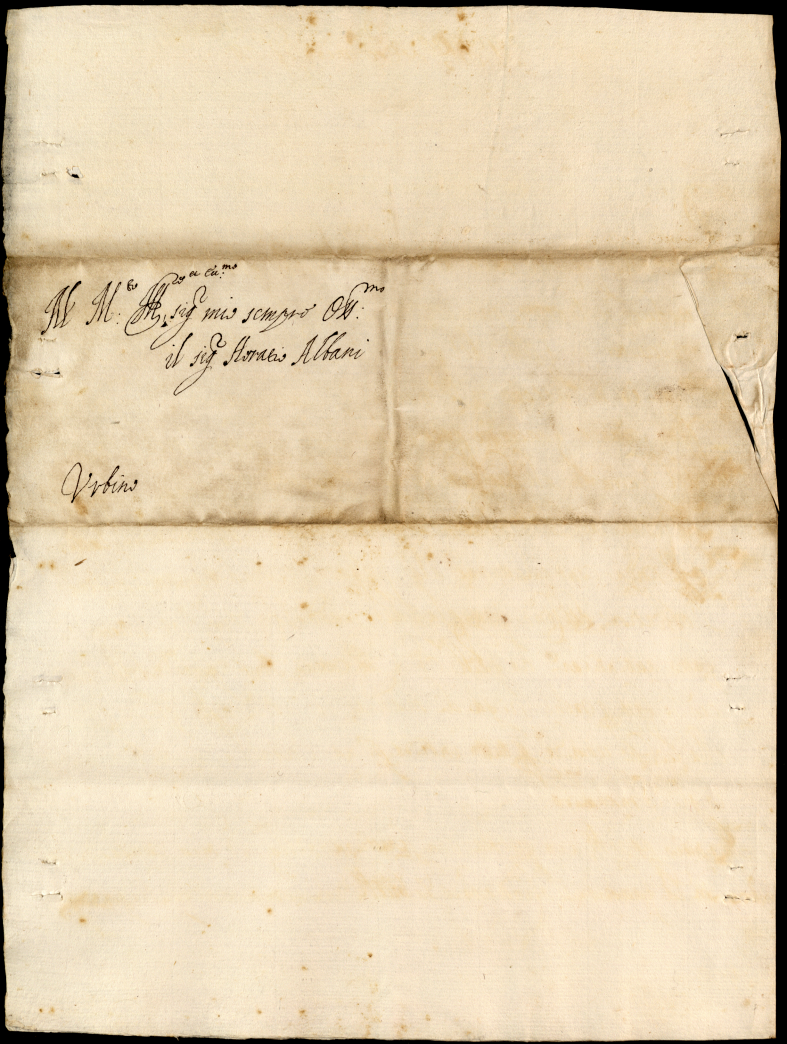 Al M:to Ill.re sig.r mio sempre Oss:mo
il sig.r Horatio Albani
Urbino